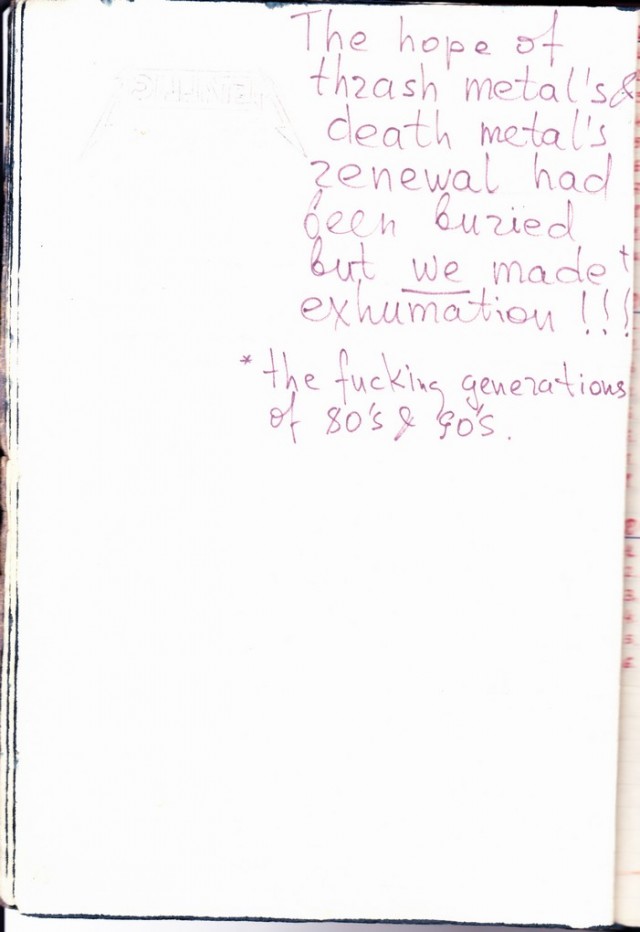 The hope of
thrash metal's &
death metal's
renewal had
been buried
but we made *
exhumation !!!
* the fucking generations
of 80's & 90's.